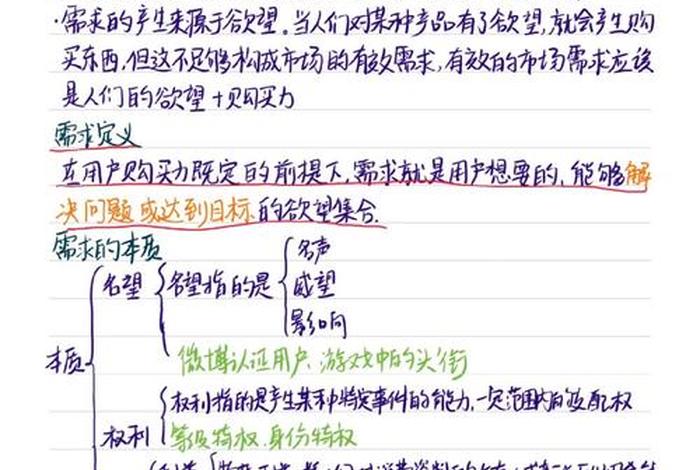 ·需求的产生来源于欲望。当人们对某种产品有了欲望,就会产生购
买东西,但这不足够构成市场的有效需求,有效的市场需求应该
是人们的欲望+购买力
需求定义
在用户购买力既定的前提下,需求就是用户想要的,能够解
决问题或达到目标的欲望集合.
需求的本质
名声
名望 名望指的是 威望
影响
本质
微博认证用户、游戏中的头衔
权利指的是产生某种特定事件的能力,一定范围内的支配权
权利
等级特权.身份特权